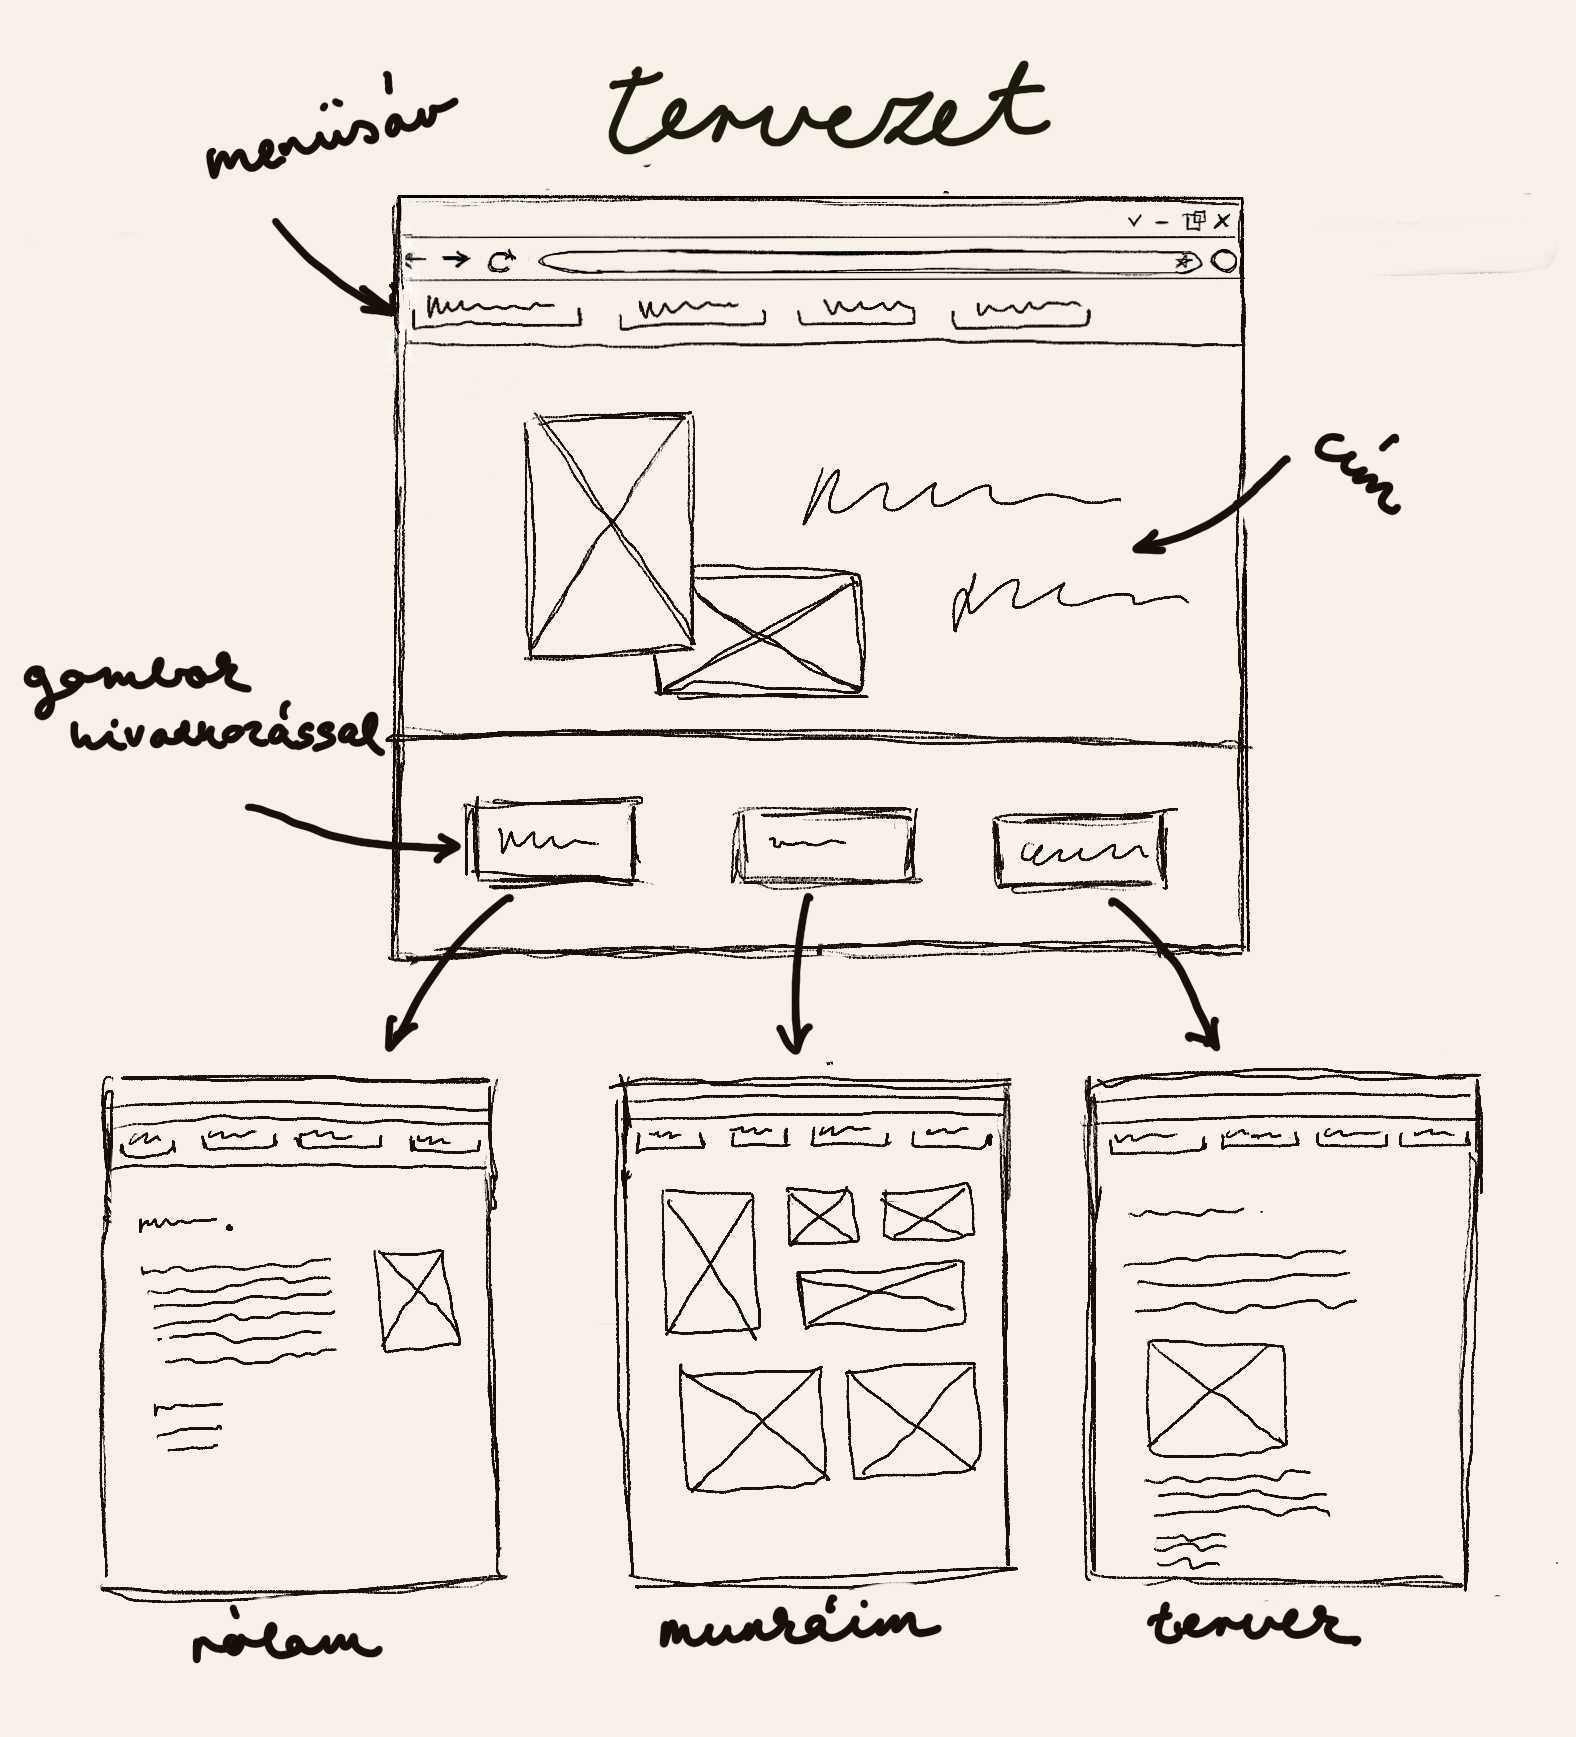 tervezet
menüsáv
cím
gombok
hivatkozással
rólam
munkáim
tervek